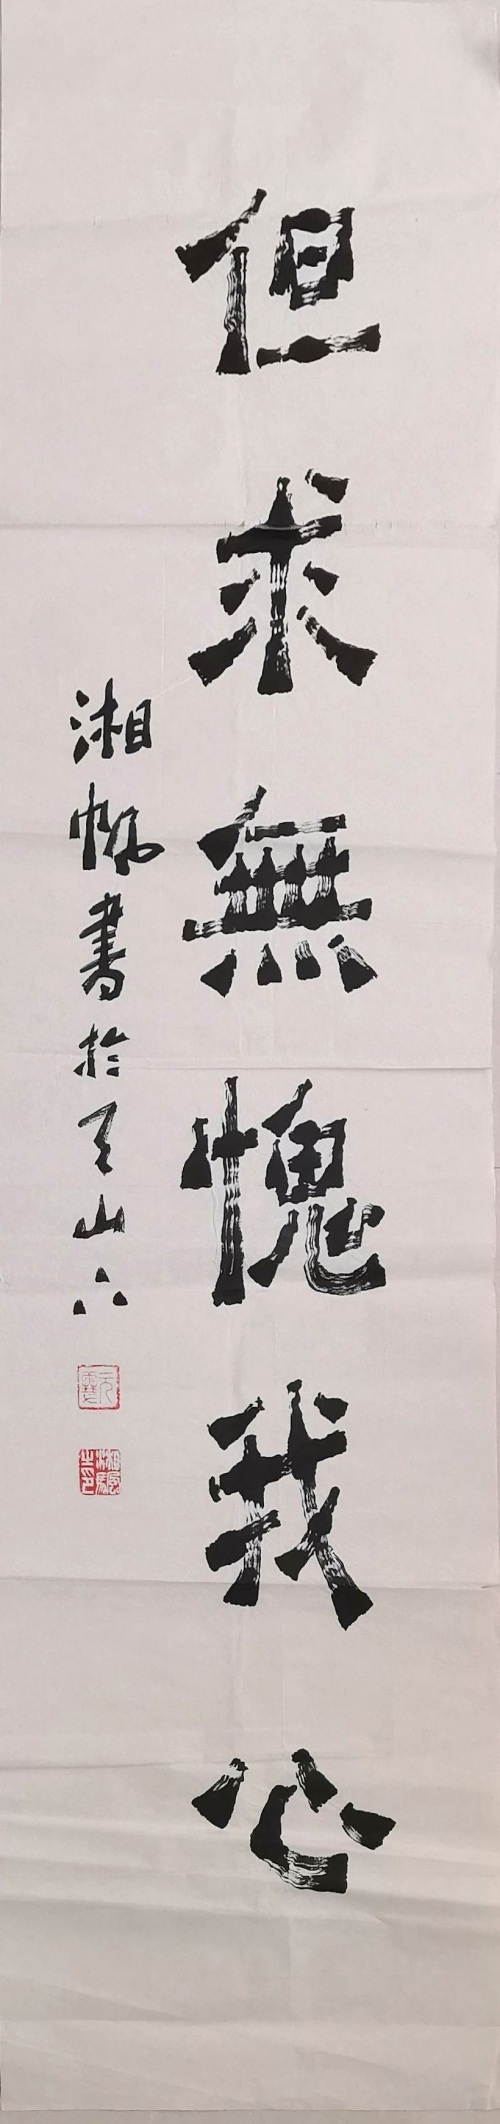 但求無愧我心
湘帆書於天山下
湘颿之印